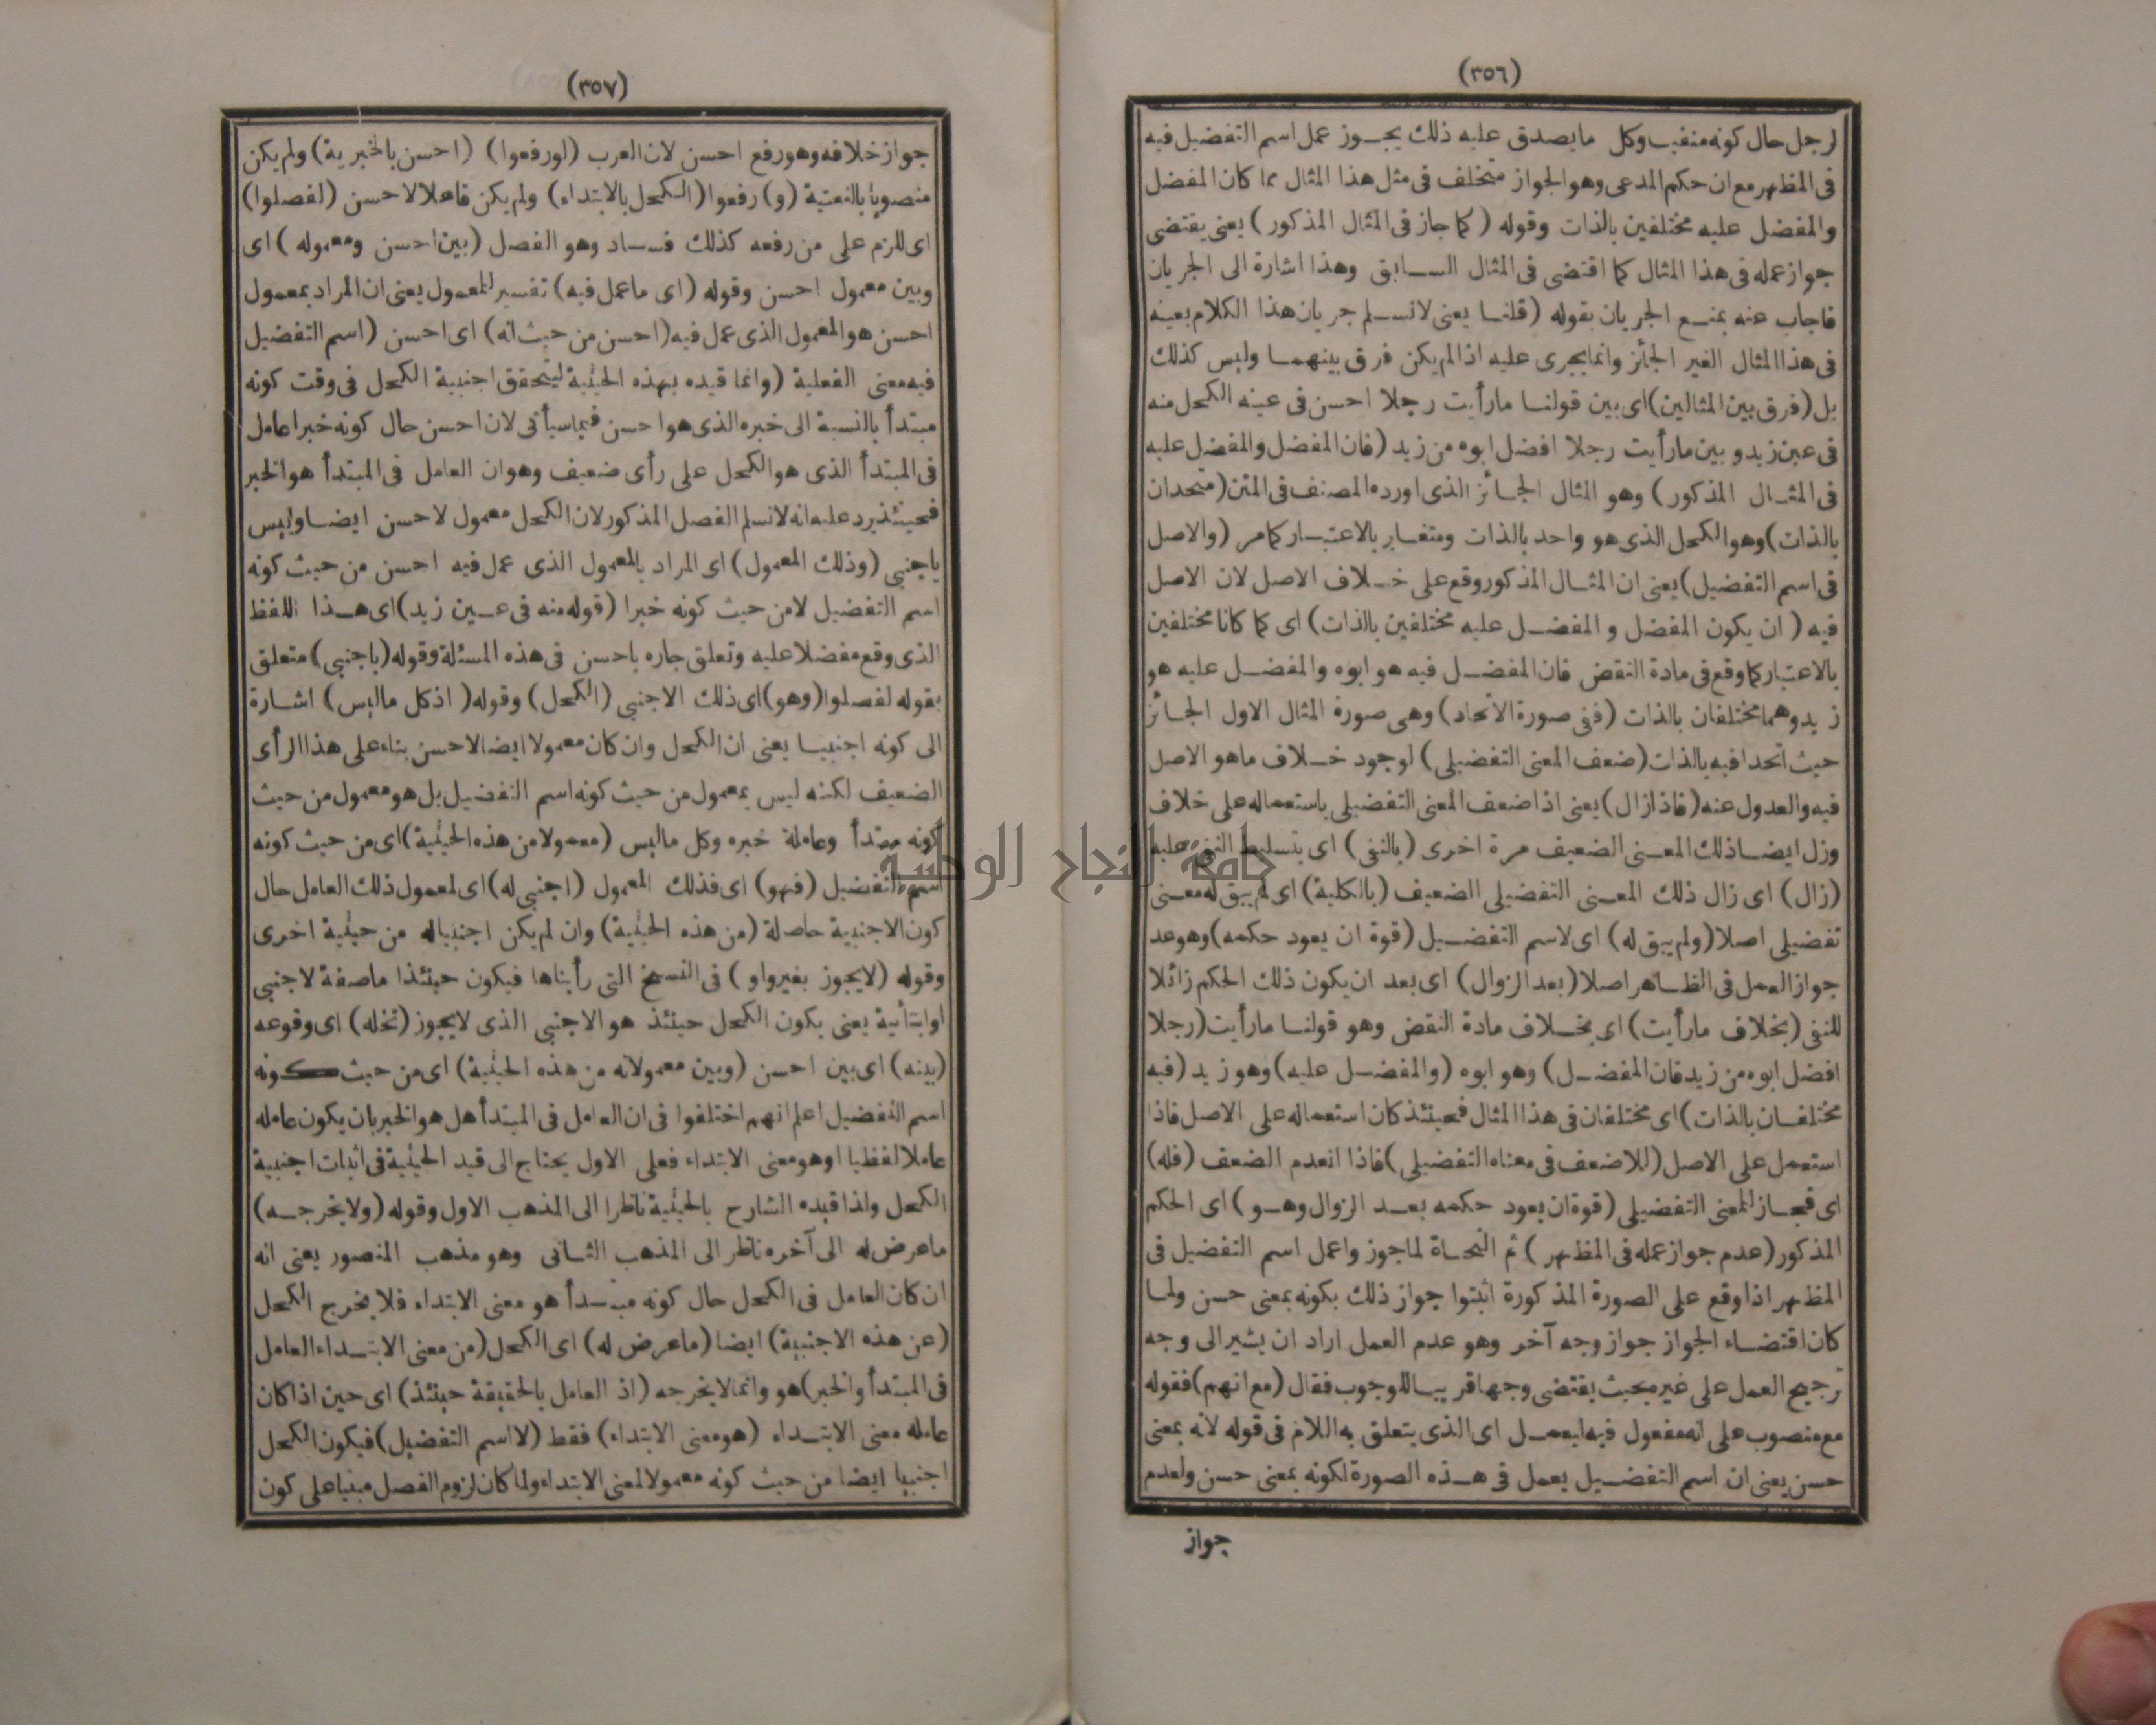 (٣٥٦)
لرجل حال كونه منفيب وكل مايصدق عليه ذلك يجوز عمل اسم التفضيل فيه
فى المظهر مع ان حكم المدعى وهو الجواز متخلف فى مثل هذا المثال مما كان المفضل
والمفضل عليه مختلفين بالذات وقوله (كما جاز فى المثال المذكور) يعنى يقتضى
جواز عمله فى هذا المثال كما اقتضى فى المثال السابق وهذا اشارة الى الجريان
فاجاب عنه بمنع الجريان بقوله (قلنا يعنى لانسلم جريان هذا الكلام بعينه
فى هذا المثال الغير الجائز وانما يجرى عليه اذا لم يكن فرق بينهما وليس كذلك
بل (فرق بين المثالين) اى بين قولنا مارأيت رجلا احسن فى عينه الكحل منه
فى عين زيد وبين مارأيت رجلا افضل ابوه من زيد (فان المفضل والمفضل عليه
فى المثال المذكور) وهو المثال الجائز الذى اورده المصنف فى المتن (متحدان
بالذات) وهو الكحل الذى هو واحد بالذات ومتغاير بالاعتبار كما مر (والاصل
فى اسم التفضيل) يعنى ان المثال المذكور وقع على خلاف الاصل لان الاصل
فيه (ان يكون المفضل والمفضل عليه مختلفين بالذات) اى كما كانا مختلفين
بالاعتبار كما وقع فى مادة النقض فان المفضل فيه هو ابوه والمفضل عليه هو
زيد وهما مختلفان بالذات (ففى صورة الاتحاد) وهى صورة المثال الاول الجائز
حيث اتحدا فيه بالذات (ضعف المعنى التفضيلى) لوجود خلاف ماهو الاصل
فيه والعدول عنه (فاذا زال) يعنى اذا ضعف المعنى التفضيلى باستعماله على خلاف
وزل ايضا ذلك المعنى الضعيف مرة اخرى (بالنفى) اى بتسليط النفى عليه
(زال) اى زال ذلك المعنى التفضيلى الضعيف (بالكلية) اى لم يبق له معنى
تفضيلى اصلا (ولم يبق له) اى لاسم التفضيل (قوة ان يعود حكمه) وهو عد
جواز العمل فى الظاهر اصلا (بعد الزوال) اى بعد ان يكون ذلك الحكم زائلا
للنفى (بخلاف مارأيت) اى بخلاف مادة النقض وهو قولنا مارأيت (رجلا
افضل ابوه من زيد فان المفضل) وهو ابوه (والمفضل عليه) وهو زيد (فيه
مختلفان بالذات) اى مختلفان فى هذا المثال فحينئذ كان استعماله على الاصل فاذا
استعمل على الاصل (للاضعف فى معناه التفضيلى) فاذا انعدم الضعف (فله)
اى فجاز للمعنى التفضيلى (قوة ان يعود حكمه بعد الزوال وهو) اى الحكم
المذكور (عدم جواز عمله فى المظهر) ثم النحاة لما جوز واعمل اسم التفضيل فى
المظهر اذا وقع على الصورة المذكورة اثبتوا جواز ذلك بكونه بمعنى حسن ولما
كان اقتضاء الجواز جواز وجه آخر وهو عدم العمل اراد ان يشير الى وجه
ترجيح العمل على غيره بحيث يقتضى وجها قريبا للوجوب فقال (مع انهم) فقوله
مع منصوب على انه مفعول فيه ليعمل اى الذى يتعلق به اللام فى قوله لانه بمعنى
حسن يعنى ان اسم التفضيل يعمل فى هذه الصورة لكونه بمعنى حسن ولعدم
جواز
(٣٥٧)
جواز خلافه وهو رفع احسن لان العرب (لو رفعوا) (احسن بالخبرية) ولم يكن
منصوبا بالنعتية (و) رفعوا (الكحل بالابتداء) ولم يكن فاعلا لاحسن (لفصلوا)
اى للزم على من رفعه كذلك فساد وهو الفصل (بين احسن ومعموله) اى
وبين معمول احسن وقوله (اى ماعمل فيه) تفسير للمعمول يعنى ان المراد بمعمول
احسن هو المعمول الذى عمل فيه (احسن من حيث انه) اى احسن (اسم التفضيل
فيه معنى الفعلية (وانما قيده بهذه الحيثية ليتحقق اجنبية الكحل فى وقت كونه
مبتدأ بالنسبة الى خبره الذى هو احسن فيما سيأتى لان احسن حال كونه خبرا عامل
فى المبتدأ الذى هو الكحل على رأى ضعيف وهو ان العامل فى المبتدأ هو الخبر
فحينئذ يرد عليه انه لانسلم الفصل المذكور لان الكحل معمول لاحسن ايضا وليس
باجنبى (وذلك المعمول) اى المراد بالمعمول الذى عمل فيه احسن من حيث كونه
اسم التفضيل لامن حيث كونه خبرا (قوله منه فى عين زيد) اى هذا اللفظ
الذى وقع مفضلا عليه وتعلق جاره باحسن فى هذه المسئلة وقوله (باجنبى) متعلق
بقوله لفصلوا (وهو) اى ذلك الاجنبى (الكحل) وقوله (اذ كل ماليس) اشارة
الى كونه اجنبيا يعنى ان الكحل وان كان معمولا ايضا لاحسن بناء على هذا الرأى
الضعيف لكنه ليس بمعمول من حيث كونه اسم التفضيل بل هو معمول من حيث
كونه مبتدأ وعامله خبره وكل ماليس (معمولا من هذه الحيثية) اى من حيث كونه
اسم التفضيل (فهو) اى فذلك المعمول (اجنبى له) اى لمعمول ذلك العامل حال
كون الاجنبية حاصلة (من هذه الحيثية) وان لم يكن اجنبيا له من حيثية اخرى
وقوله (لايجوز بغير واو) فى النسخ التى رأيناها فيكون حينئذا ماصفة لاجنبى
اوابتدائية يعنى يكون الكحل حينئذ هو الاجنبى الذى لايجوز (تخلله) اى وقوعه
(بينه) اى بين احسن (وبين معمولاته من هذه الحيثية) اى من حيث كونه
اسم التفضيل اعلم انهم اختلفوا فى ان العامل فى المبتدأ هل هو الخبر بان يكون عامله
عاملا لفظيا اوهو معنى الابتداء فعلى الاول يحتاج الى قيد الحيثية فى اثبات اجنبية
الكحل ولذا قيده الشارح بالحيثية ناظرا الى المذهب الاول وقوله (ولايخرجه)
ماعرض له الى آخره ناظر الى المذهب الثانى وهو مذهب المنصور يعنى انه
ان كان العامل فى الكحل حال كونه مبتدأ هو معنى الابتداء فلا يخرج الكحل
(عن هذه الاجنبية) ايضا (ماعرض له) اى الكحل (من معنى الابتداء العامل
فى المبتدأ والخبر) هو وانما لايخرجه (اذ العامل بالحقيقة حينئذ) اى حين اذا كان
عامله معنى الابتداء (هو معنى الابتداء) فقط (لااسم التفضيل) فيكون الكحل
اجنبيا ايضا من حيث كونه معمولا لمعنى الابتداء ولما كان لزوم الفصل مبنيا على كون
جامعة النجاح الوطنية